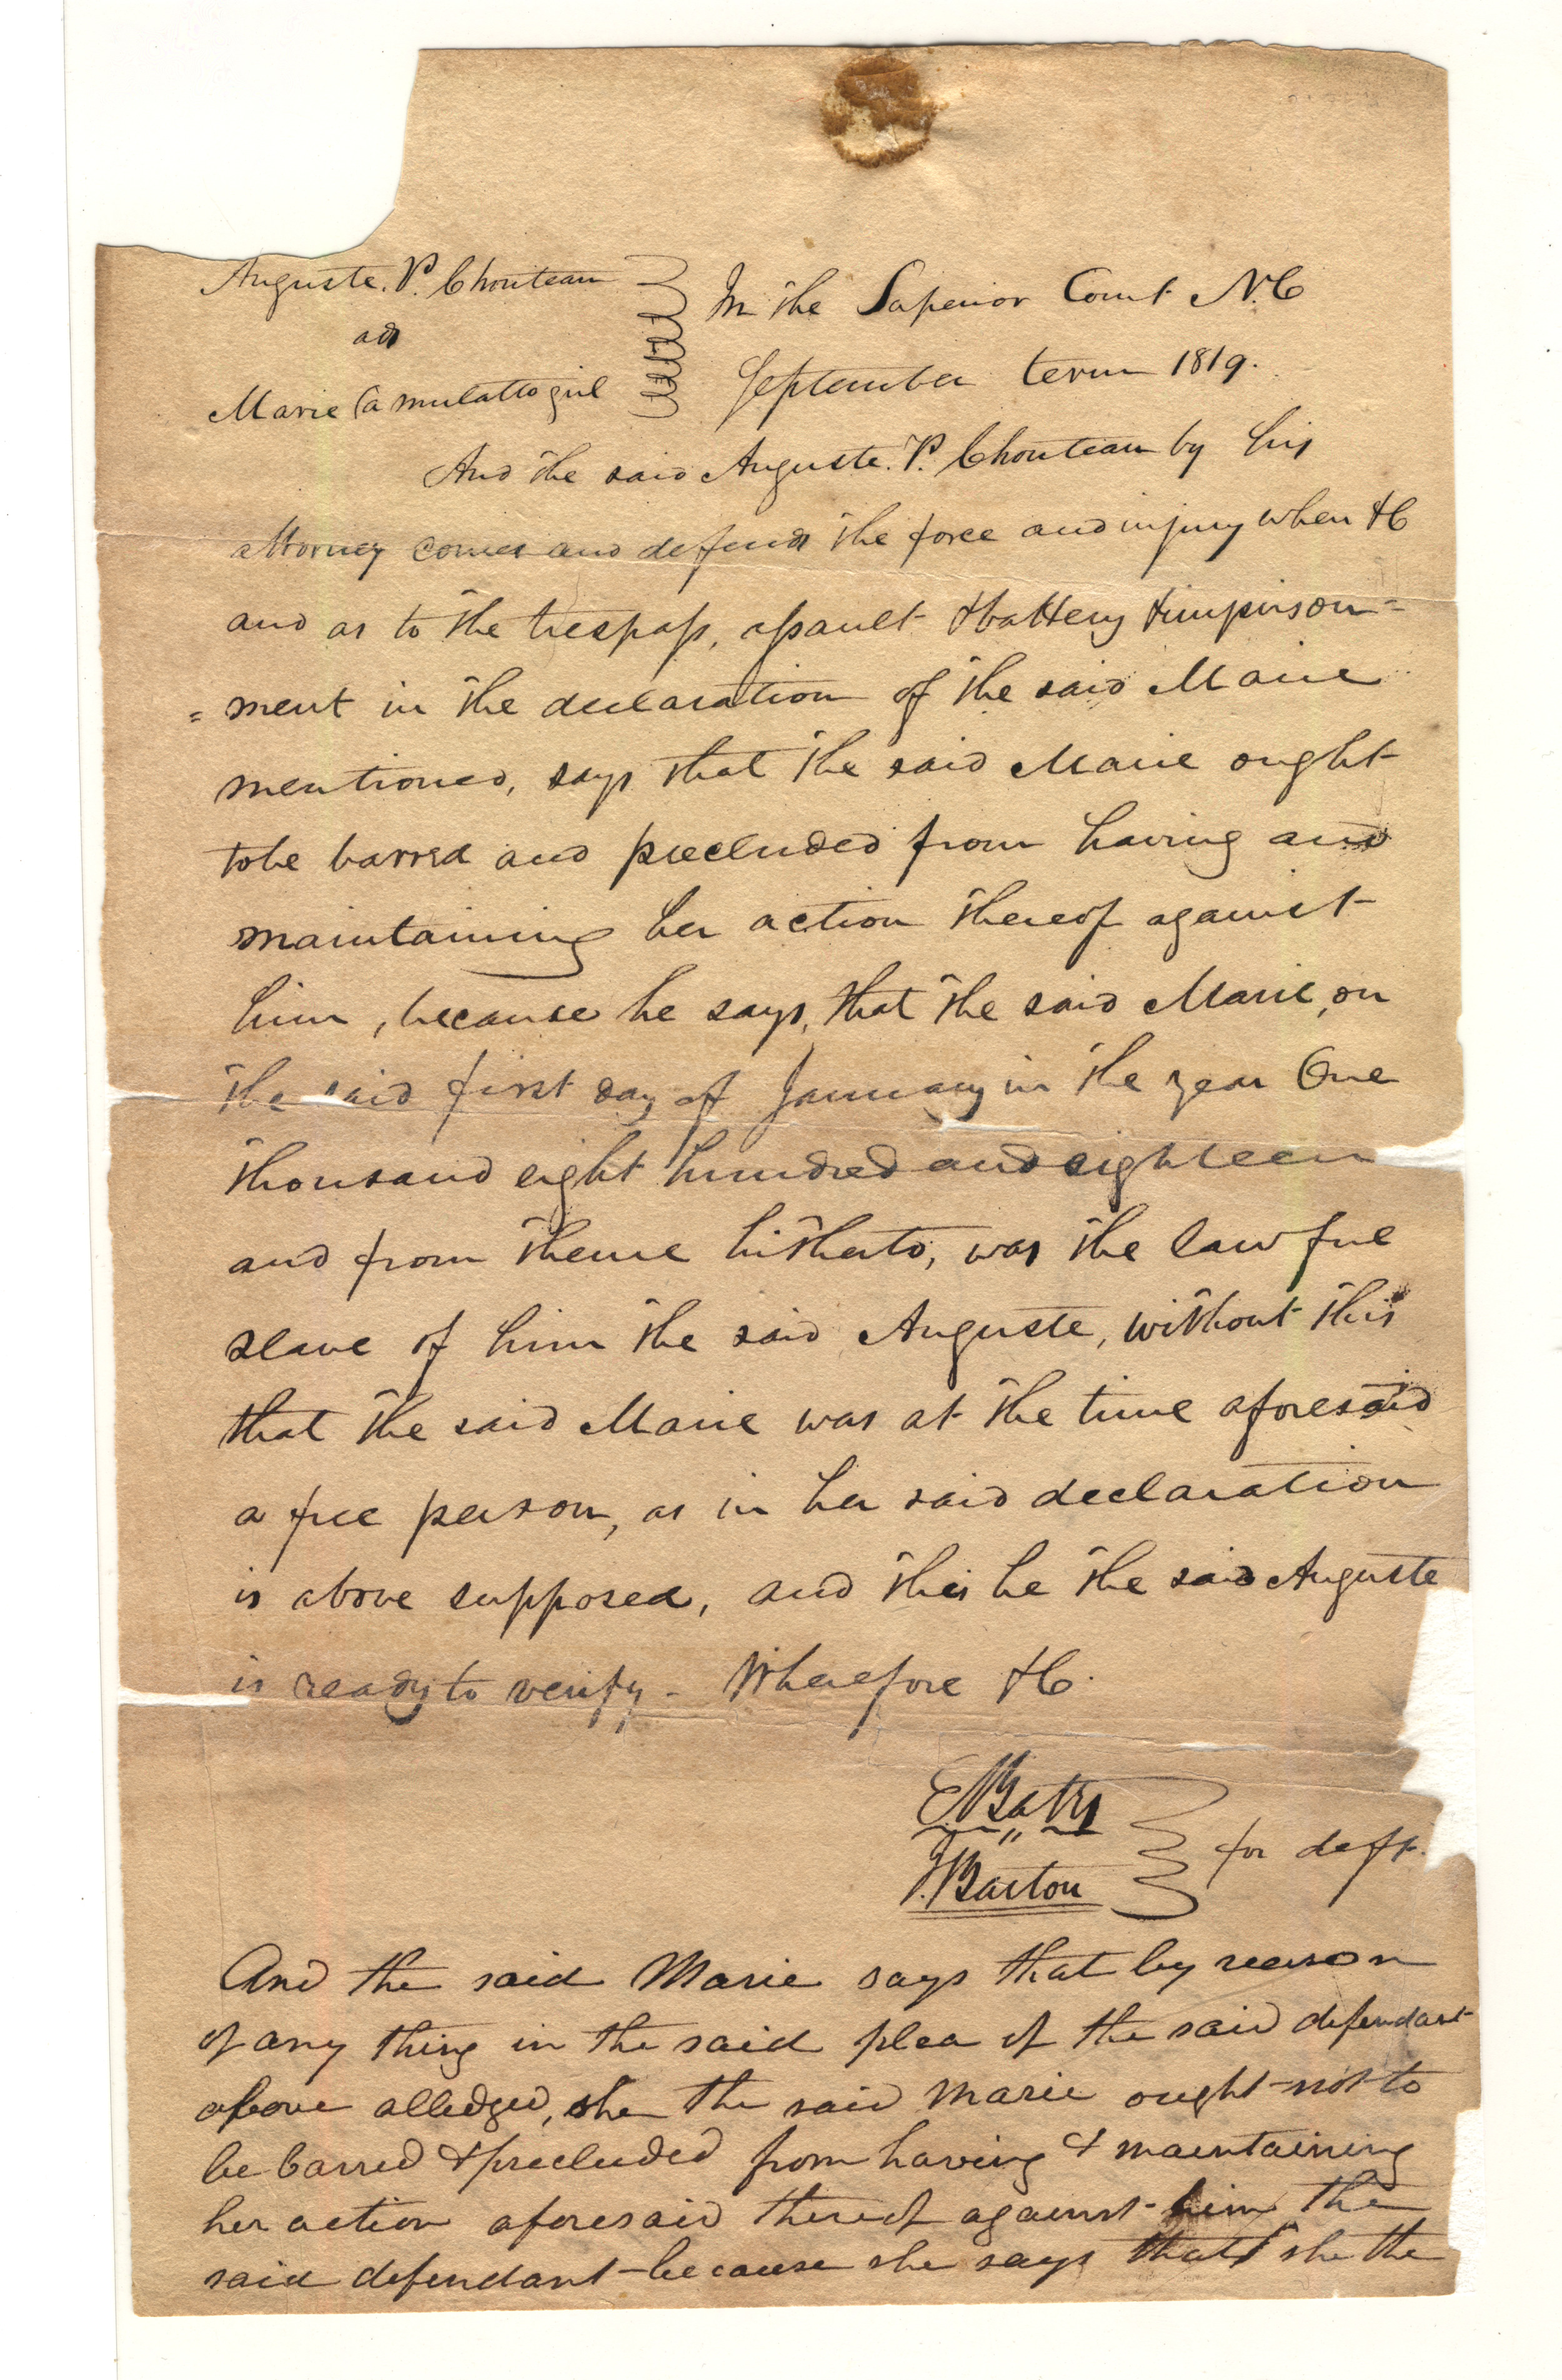 Auguste. P. Chouteau
ads
Marie (a mulatto girl
In the Superior Court N.C
September term 1819.
And the said Auguste. P. Chouteau by his
attorney comes and defends the force and injury when &C
and as to the trespass, assault & battery & imprison=
=ment in the declaration of the said Marie
mentioned, says that the said Marie ought
to be barred and precluded from having and
maintaining her action thereof against
him, because he says, that the said Marie, on
the said first day of January in the year One
thousand eight hundred and eighteen
and from thence hitherto, was the lawful
slave of him the said Auguste, without this
that the said Marie was at the time aforesaid
a free person, as in her said declaration
is above supposed, and this he the said Auguste
is ready to verify - Wherefore &C.
E. Bates
J. Barton
for deft.
And the said Marie says that by reason
of any thing in the said plea of the said defendant
above alledged, she the said Marie ought not to
be barred & precluded from having & maintaining
her action aforesaid thereof against him the
said defendant - because she says that she the